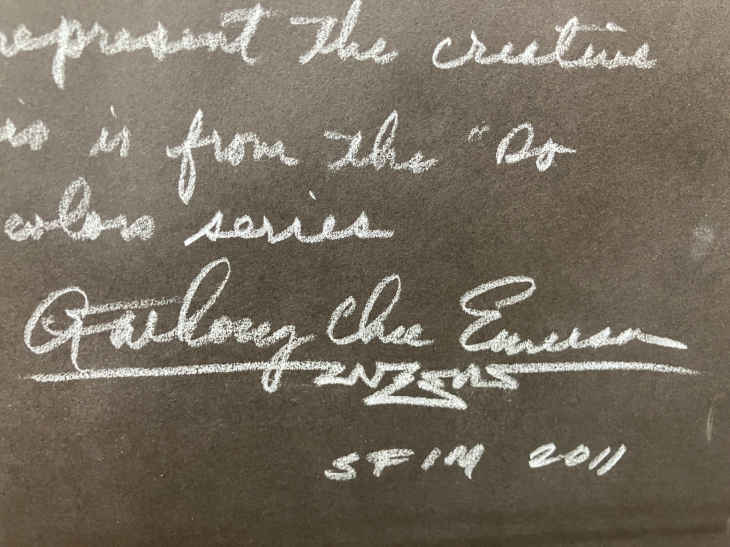 represent the creative
is from the "Do
colors series
Chee Emerson
SFIM 2011